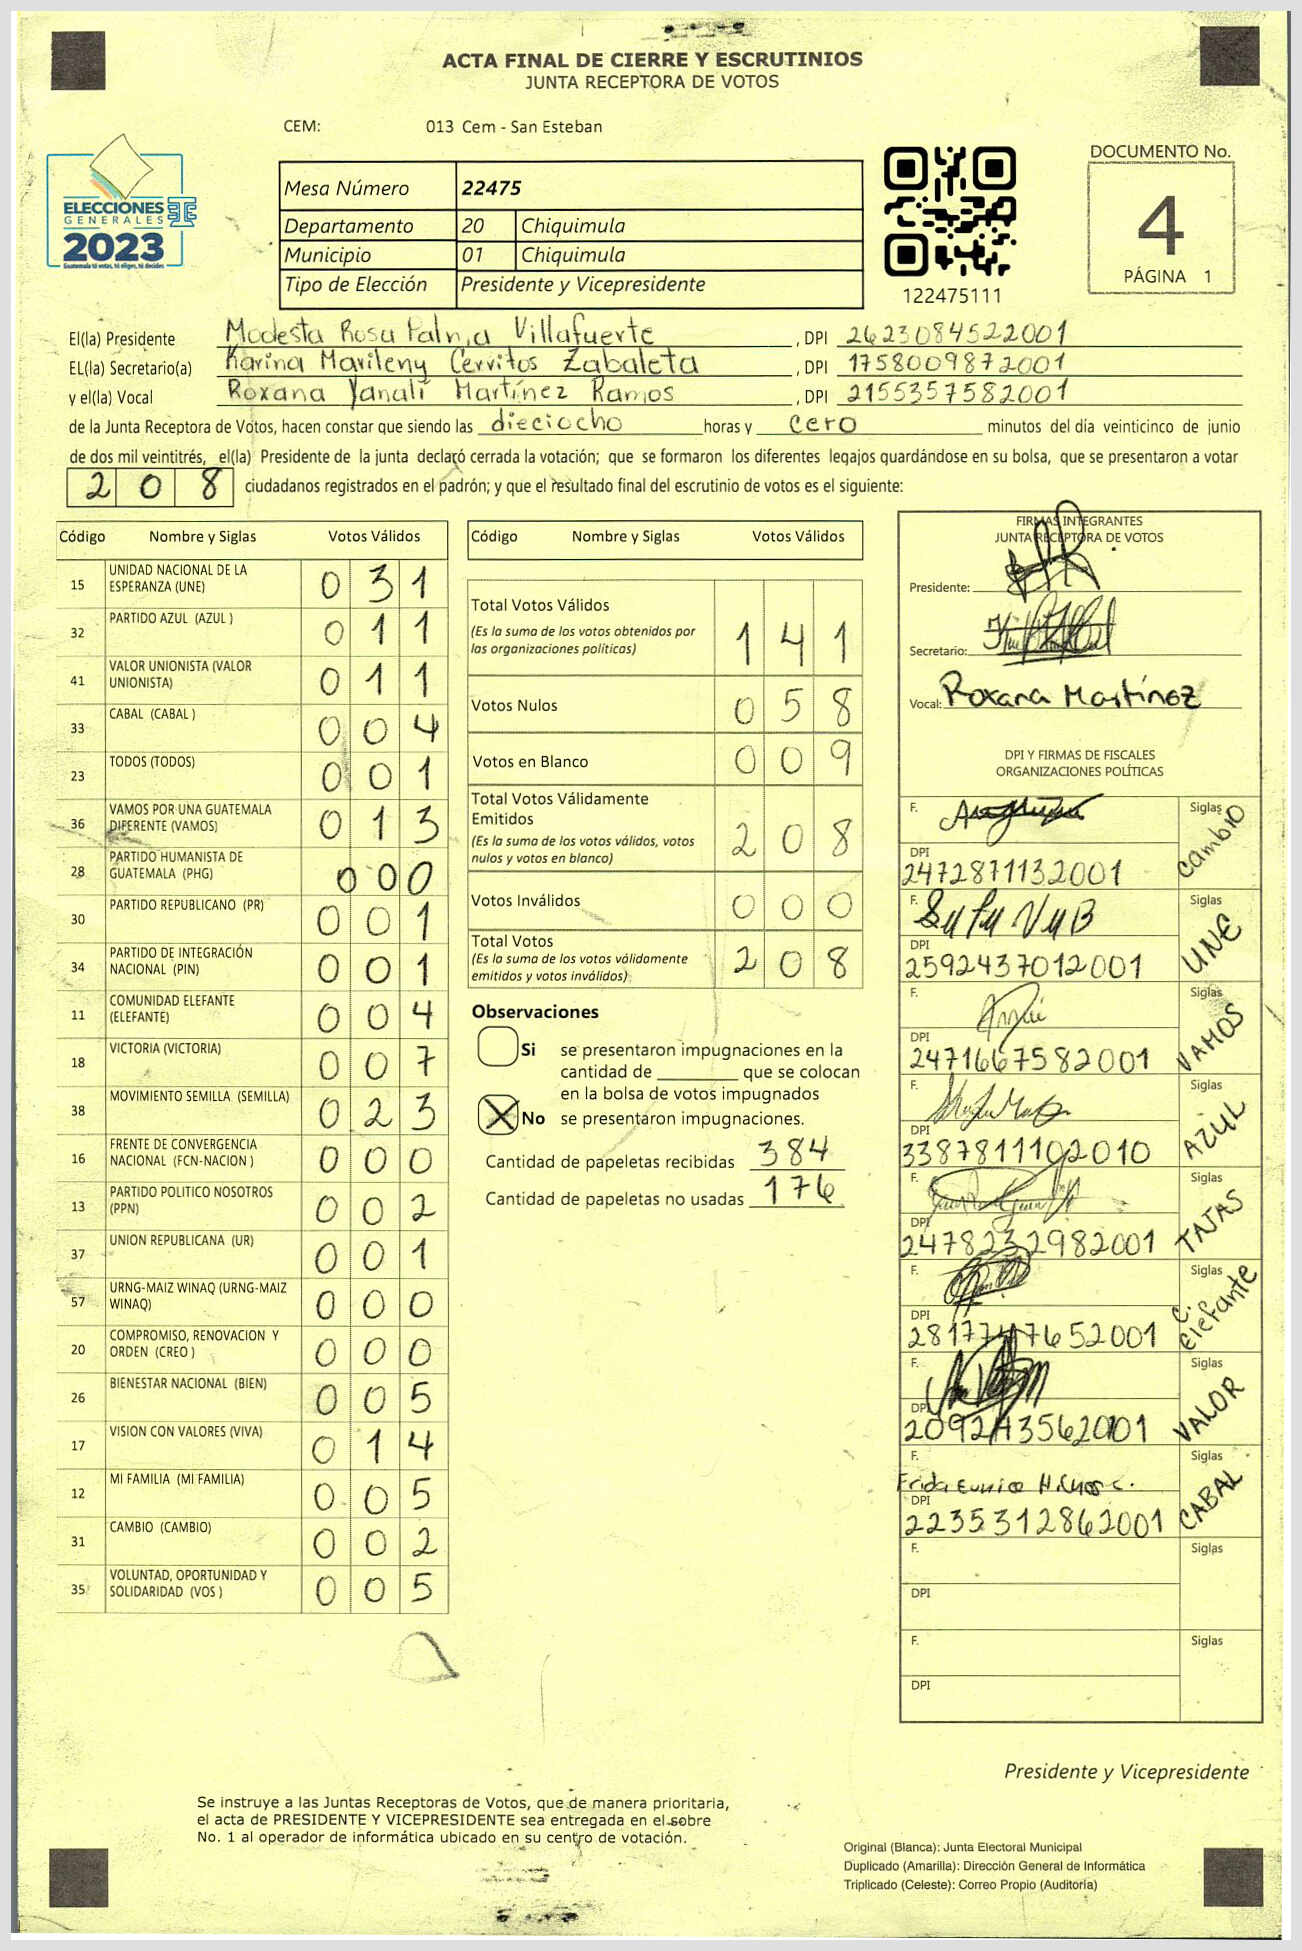 ACTA FINAL DE CIERRE Y ESCRUTINIOS
JUNTA RECEPTORA DE VOTOS
CEM: 013 Cem - San Esteban
ELECCIONES
GENERALES
2023
Guatemala tú votas, tú eliges, tú decides
Mesa Número 22475
Departamento 20 Chiquimula
Municipio 01 Chiquimula
Tipo de Elección Presidente y Vicepresidente
122475111
DOCUMENTO No.
4
PÁGINA 1
El(la) Presidente Modesta Rosa Palma Villafuerte, DPI 2623084522001
EL(la) Secretario(a) Karina Marileny Cervitos Zabaleta, DPI 1758009872001
y el(la) Vocal Roxana Yanali Martínez Ramos, DPI 2155357582001
de la Junta Receptora de Votos, hacen constar que siendo las dieciocho horas y cero minutos del día veinticinco de junio
de dos mil veintitrés, el(la) Presidente de la junta declaró cerrada la votación; que se formaron los diferentes legajos guardándose en su bolsa, que se presentaron a votar
208 ciudadanos registrados en el padrón; y que el resultado final del escrutinio de votos es el siguiente:
Código Nombre y Siglas Votos Válidos
15 UNIDAD NACIONAL DE LA ESPERANZA (UNE) 031
32 PARTIDO AZUL (AZUL ) 011
41 VALOR UNIONISTA (VALOR UNIONISTA) 011
33 CABAL (CABAL ) 004
23 TODOS (TODOS) 001
36 VAMOS POR UNA GUATEMALA DIFERENTE (VAMOS) 013
28 PARTIDO HUMANISTA DE GUATEMALA (PHG) 000
30 PARTIDO REPUBLICANO (PR) 001
34 PARTIDO DE INTEGRACIÓN NACIONAL (PIN) 001
11 COMUNIDAD ELEFANTE (ELEFANTE) 004
18 VICTORIA (VICTORIA) 007
38 MOVIMIENTO SEMILLA (SEMILLA) 023
16 FRENTE DE CONVERGENCIA NACIONAL (FCN-NACION ) 000
13 PARTIDO POLITICO NOSOTROS (PPN) 002
37 UNION REPUBLICANA (UR) 001
57 URNG-MAIZ WINAQ (URNG-MAIZ WINAQ) 000
20 COMPROMISO, RENOVACION Y ORDEN (CREO ) 000
26 BIENESTAR NACIONAL (BIEN) 005
17 VISION CON VALORES (VIVA) 014
12 MI FAMILIA (MI FAMILIA) 005
31 CAMBIO (CAMBIO) 002
35 VOLUNTAD, OPORTUNIDAD Y SOLIDARIDAD (VOS ) 005
Código Nombre y Siglas Votos Válidos
Total Votos Válidos 141
(Es la suma de los votos obtenidos por
las organizaciones políticas)
Votos Nulos 058
Votos en Blanco 009
Total Votos Válidamente
Emitidos 208
(Es la suma de los votos válidos, votos
nulos y votos en blanco)
Votos Inválidos 000
Total Votos 208
(Es la suma de los votos válidamente
emitidos y votos inválidos)
Observaciones
Si se presentaron impugnaciones en la
cantidad de ________ que se colocan
en la bolsa de votos impugnados
X No se presentaron impugnaciones.
Cantidad de papeletas recibidas 384
Cantidad de papeletas no usadas 176
FIRMAS INTEGRANTES
JUNTA RECEPTORA DE VOTOS
Presidente:
Secretario:
Vocal: Roxana Martínez
DPI Y FIRMAS DE FISCALES
ORGANIZACIONES POLÍTICAS
F. Siglas cambio
DPI 2472871132001
F. Siglas UNE
DPI 2592437012001
F. Siglas VAMOS
DPI 2471667582001
F. Siglas AZUL
DPI 3387811102010
F. Siglas
DPI 2478232982001
F. Siglas C. Elefante
DPI
F. Siglas VALOR
DPI
F. Frida Eunice Siglas CABAL
DPI 2235312862001
F. Siglas
DPI
F. Siglas
DPI
Presidente y Vicepresidente
Se instruye a las Juntas Receptoras de Votos, que de manera prioritaria,
el acta de PRESIDENTE Y VICEPRESIDENTE sea entregada en el sobre
No. 1 al operador de informática ubicado en su centro de votación.
Original (Blanca): Junta Electoral Municipal
Duplicado (Amarilla): Dirección General de Informática
Triplicado (Celeste): Correo Propio (Auditoría)